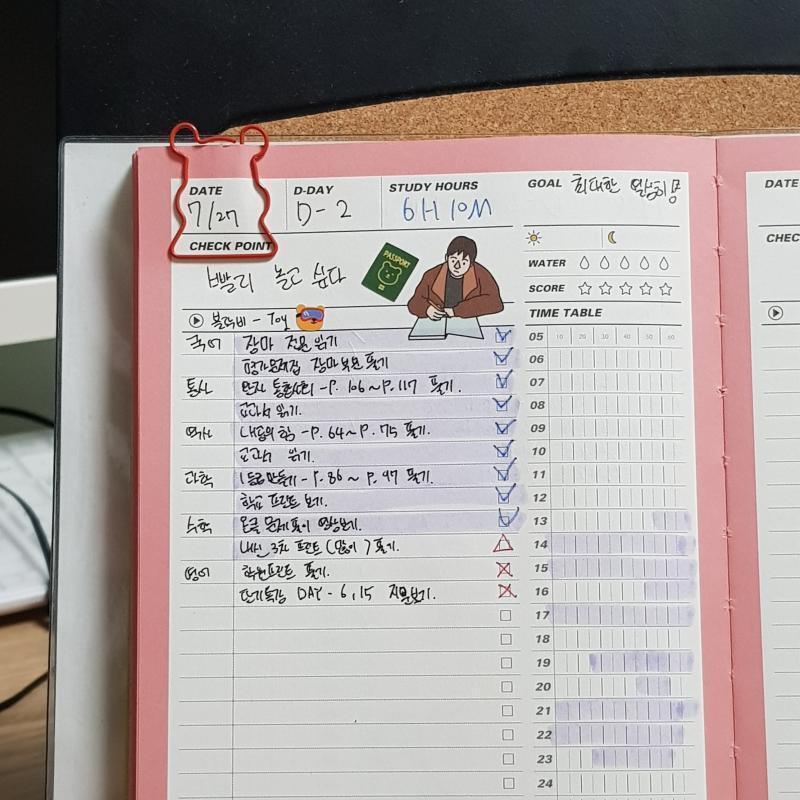 DATE D-DAY STUDY HOURS GOAL
7/27 D-2 6H 10M 최대한 열심히
CHECK POINT
빨리 놀고 싶다
PASSPORT
WATER
SCORE
TIME TABLE
10 20 30 40 50 60
볼빨비 - Toy
국어 장마 전문 읽기
평가문제집 장마 부분 풀기
통사 완자 통합사회 - P. 106 ~ P. 117 풀기.
교과서 읽기.
역사 내공의 힘 - P. 64 ~ P. 75 풀기.
교과서 읽기.
과학 1등급 만들기 - P. 86 ~ P. 97 풀기.
학교 프린트 보기.
수학 문제 풀이 영상보기.
내신 3차 프린트 (많이) 풀기.
영어 학원프린트 풀기.
단기특강 DAY - 6, 15 지문보기.
05
06
07
08
09
10
11
12
13
14
15
16
17
18
19
20
21
22
23
24
DATE
CHEC